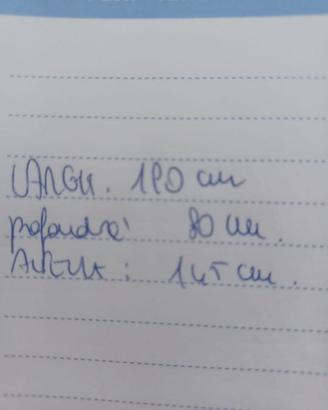 LARGH. 190 cm
profondità 80 cm.
Altezza: 145 cm.